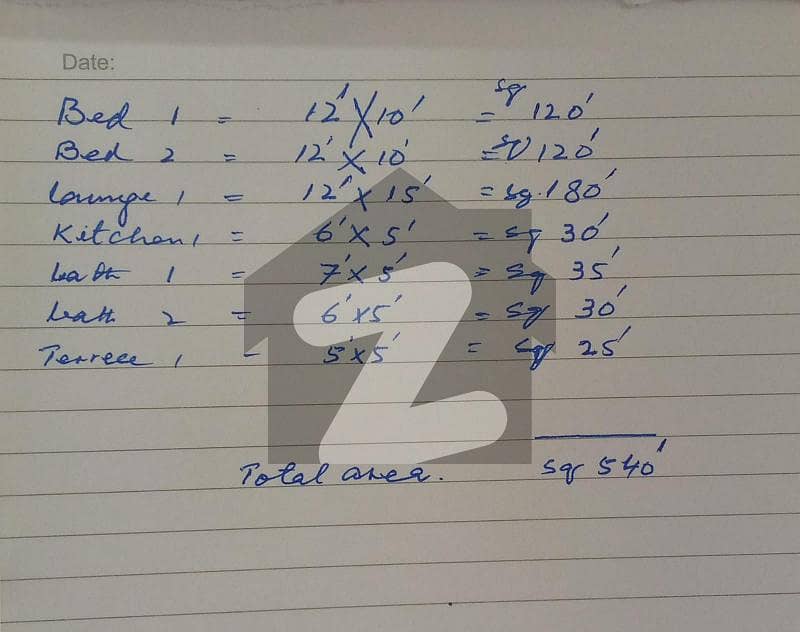 Date:
Bed 1 = 12' X 10' = sq 120'
Bed 2 = 12' X 10' = sq 120'
Lounge 1 = 12' X 15' = sq. 180'
Kitchen 1 = 6' X 5' = sq 30'
bath 1 = 7' X 5' = sq 35'
bath 2 = 6' X 5' = sq 30'
Terrece 1 - 5' X 5' = sq 25'
Total area. sq 540'